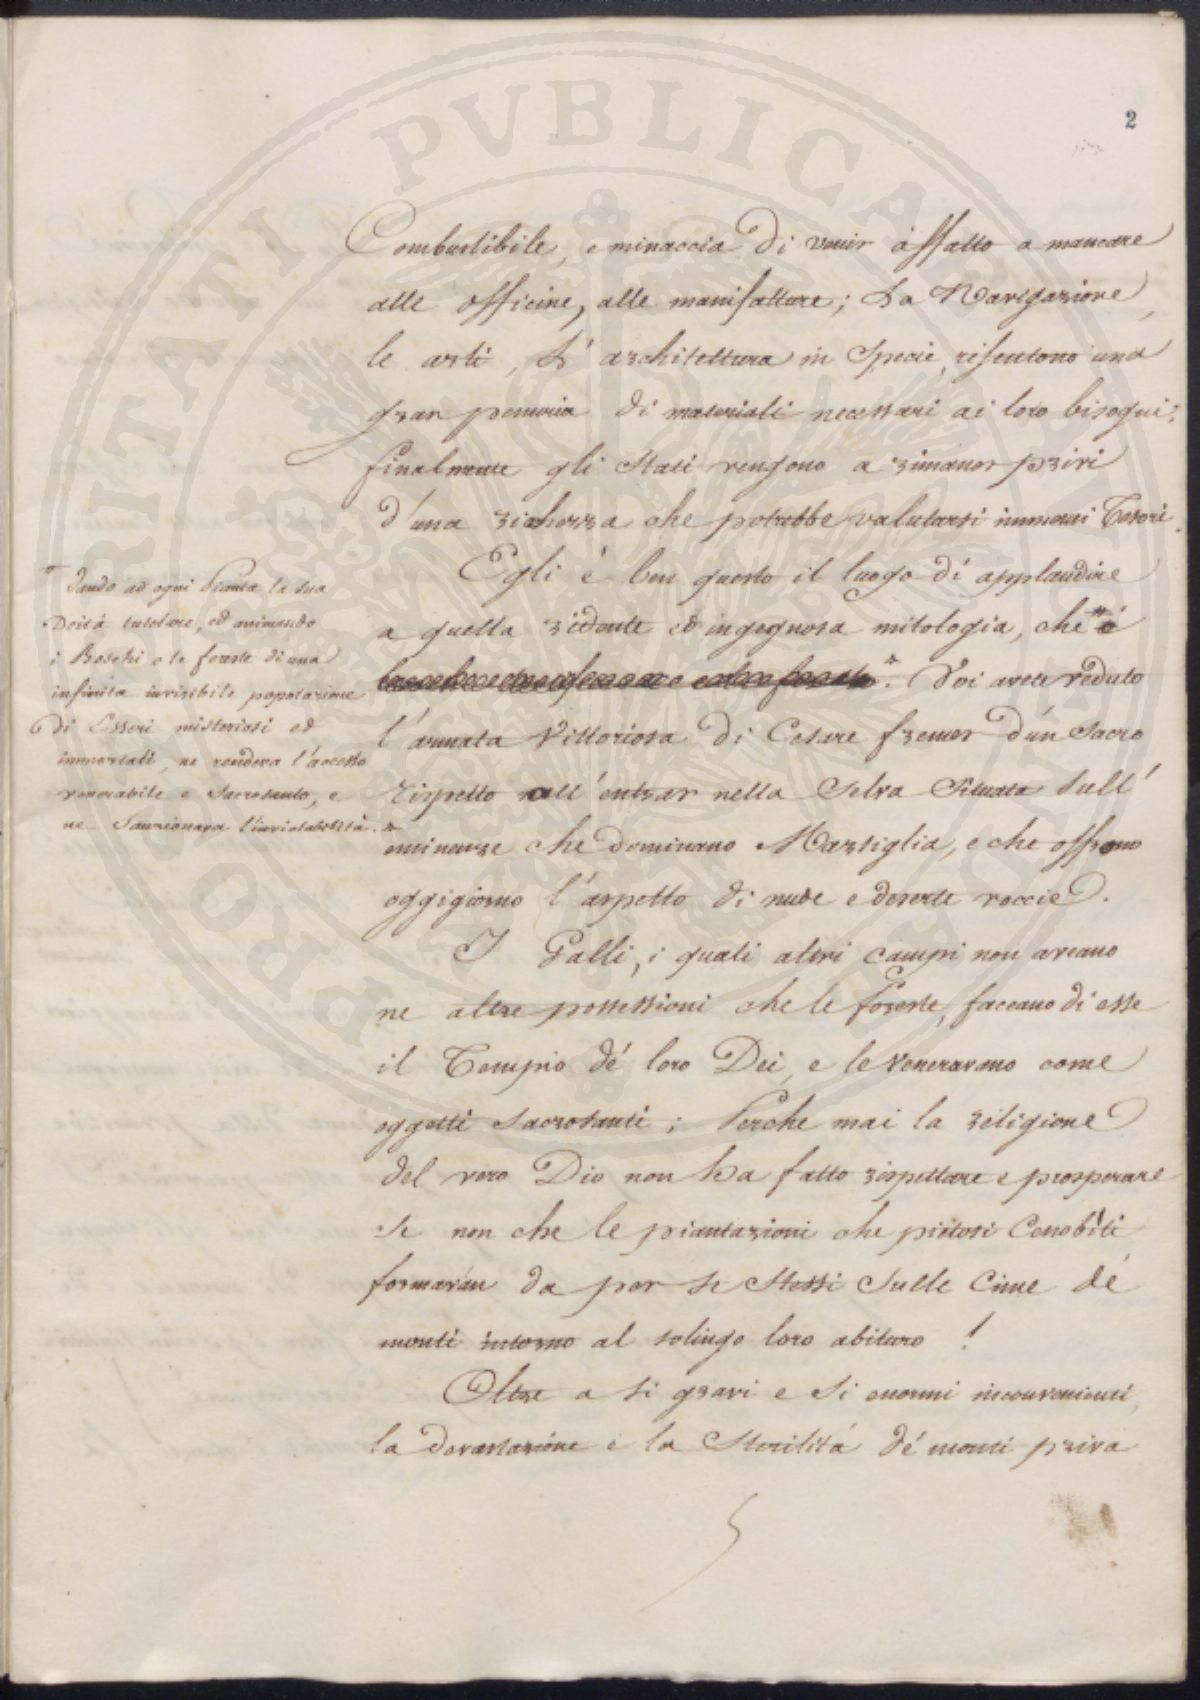 2
Combustibile, e minaccia di venir affatto a mancare
alle officine, alle manifatture; La Navigazione,
le arti, L'architettura in Specie, risentono una
gran penuria di materiali necessari ai loro bisogni;
finalmente gli Stati vengono a rimaner privi
d'una richezza che potrebbe valutarsi immensi Tesori.
Egli è ben questo il luogo di applaudire
a quella ridente ed ingegnosa mitologia, che
Voi avete veduto
l'armata Vittoriosa di Cesare fremer d'un Sacro
rispetto nell'entrar nella Selva Situata Sull'
eminenze che dominano Marsiglia, e che offrono
oggigiorno l'aspetto di nude e deserte roccie.
I Galli, i quali altri campi non aveano
ne altre possessioni che le foreste, faceano di esse
il Tempio dé loro Dei, e le Veneravano come
oggetti Sacrosanti; Perche mai la religione
del vero Dio non ha fatto rispettare e prosperare
Se non che le piantazioni che pietosi Cenobiti
formaván da per se Stessi Sulle Cime dé
monti intorno al solingo loro abituro !
Oltre a si gravi e Si enormi inconvenienti,
la devastazione e la Sterilitá dé monti priva
* dando ad ogni Pianta la sua
Deitá tutolare, ed animando
i Boschi e le foreste di una
infinita invisibile popolazione
di Esseri misteriosi ed
immortali, ne rendeva l'accesso
venerabile e Sacrosanto, e
ne Sanzionava l'inviolabilità.*
PROPRIETATI PVBLICAE